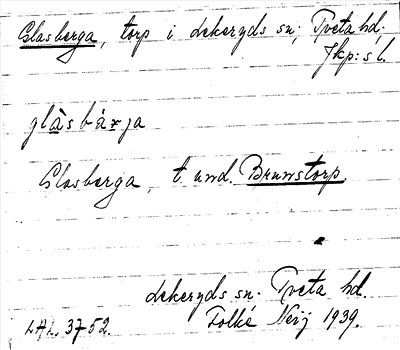 Glasberga, torp i Lekeryds sn, Tveta hd,
Jkp:s l.
glàsbárja
Glasberga, t. und. Brunstorp
Lekeryds sn. Tveta hd.
LAL. 3752. Folke Neij 1939.